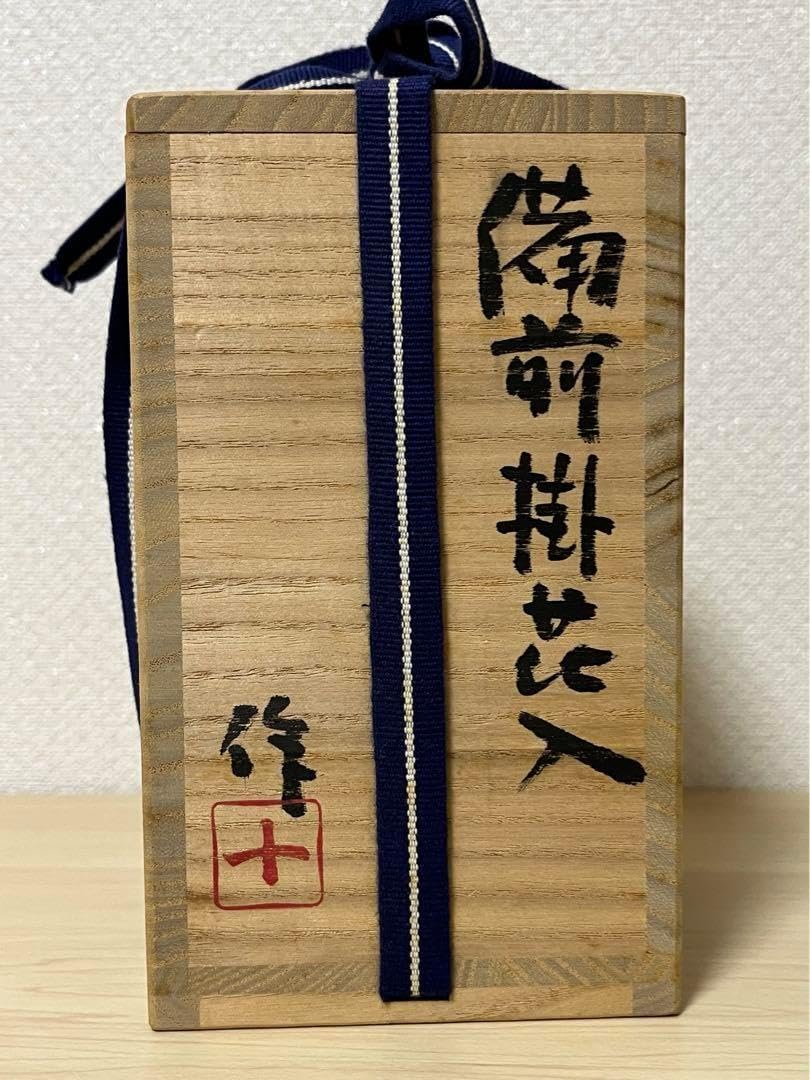 備前掛花入
作
十